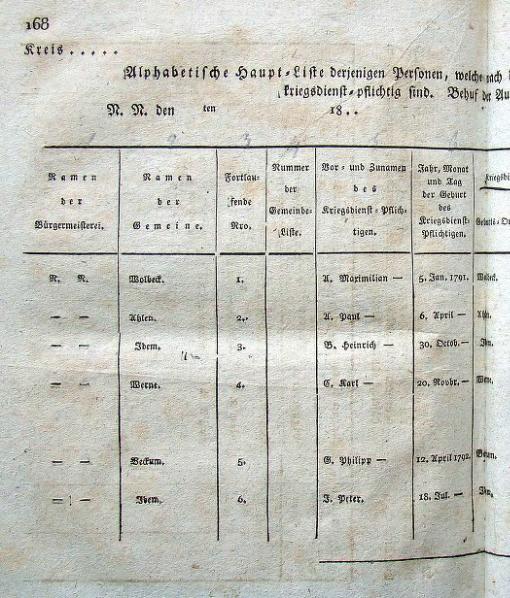 168
Kreis . . . . .
Alphabetische Haupt-Liste derjenigen Personen, welche nach
kriegsdienst-pflichtig sind. Behuf der Au
N. N. den ten 18 . .
1 2 3
Namen
der
Bürgermeisterei.
Namen
der
Gemeine.
Fortlau-
fende
Nro.
Nummer
der
Gemeinde-
Liste.
Vor- und Zunamen
des
Kriegsdienst-Pflich-
tigen.
Jahr, Monat
und Tag
der Geburt
des
Kriegsdienst-
Pflichtigen.
Kriegsdi
Geburts-O
N. N. Wolbeck. 1. A. Maximilian — 5. Jan. 1791. Wolbeck.
— — Ahlen. 2. A. Paul — 6. April — Ahlen.
— — Idem. 3. B. Heinrich — 30. Octob. — Idem.
— — Werne. 4. C. Karl — 20. Novbr. — Werne.
— — Beckum. 5. G. Philipp — 12. April 1792.
— — Idem. 6. J. Peter. 18. Jul. — Idem.